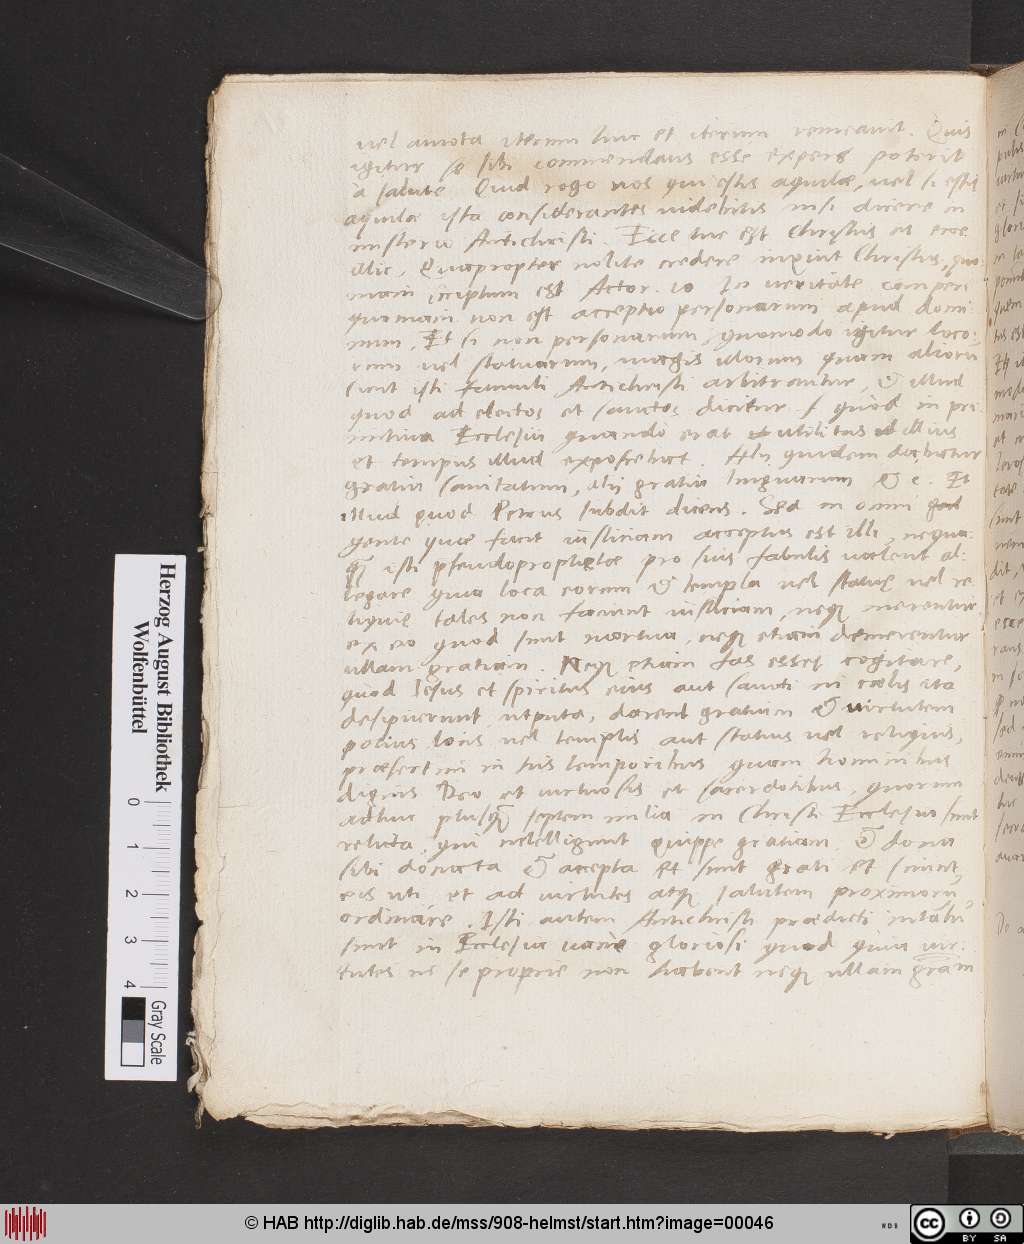 vel amota iterum huc et iterum remeavit. Quis
igitur se sibi commendans esse expers poterit
a salute Quid rogo vos qui estis aquilæ, vel si estis
aquilæ ista considerantes videbitis nisi dicere in
misterio Antichristi. Ecce hic est Christus et ecce
illic, Quapropter nolite credere inquit Christus, quo
niam scriptum est Actor. 10 In veritate comperi
quoniam non est acceptio personarum apud domi-
num, Et si non personarum, quomodo igitur loco-
rum vel statuarum, magis illorum quam aliorū
sicut isti famuli Antichristi arbitrantur, & illud
quod ad electos et sanctos dicitur s quod in pri
mitiva Ecclesia quando erat utilitas illius
et tempus illud exposcebat. Alij quidem dabatur
gratia sanitatum, alij gratia linguarum & c. Et
illud quod Petrus subdit dicens. Sed in omni
gente quæ facit iusticiam acceptus est illi, nequa-
isti pseudoprophetæ pro suis fabulis valent al-
legare quia loca eorum & templa vel statuę vel re
liquię tales non faciunt iusticiam, neq merentur
ex eo quod sunt mortua, neq etiam demerentur
ullam gratiam. Neq etiam fas esset cogitare,
quod Iesus et spiritus eius aut sancti in cælis ita
desipuerunt utputa, darent gratiam & virtutem
pocius locis vel templis aut statuis vel reliquiis,
præsertim in his temporibus quam hominibus
dignis Deo et virtuosis et sacerdotibus, quorum
adhuc plusq septem milia in Christi Ecclesia sunt
relicta, qui intelligunt quippe gratiam & dona
sibi donata & accepta et sunt grati et sciunt
eis uti et ad virtutes atq salutem proximorū
ordinare. Isti autem Antichristi prædicti
sunt in Ecclesia vanæ gloriosi quod quia vir-
tutes ne se proprie non habent neq ullam gram
Herzog August Bibliothek
Wolfenbüttel
0 1 2 3 4
Gray Scale
© HAB http://diglib.hab.de/mss/908-helmst/start.htm?image=00046
WDB
cc BY SA